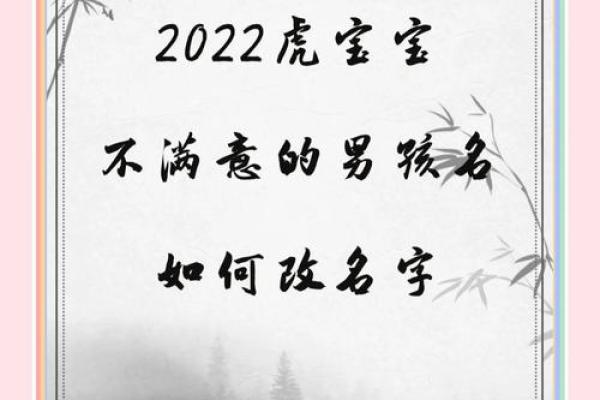 2022虎宝宝
不满意的男孩名
如何改名字